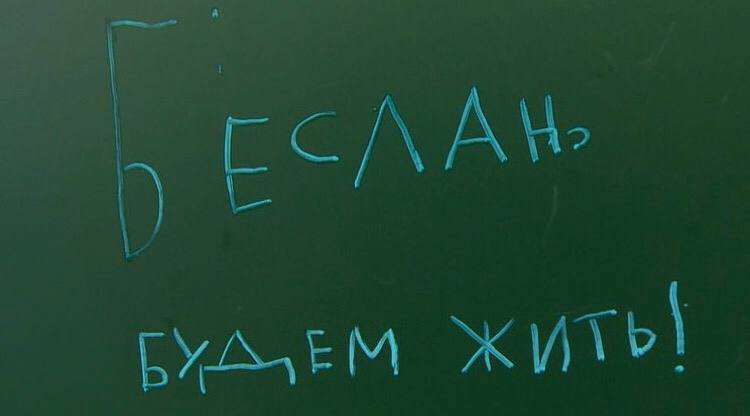 БЕСЛАН,
БУДЕМ ЖИТЬ!